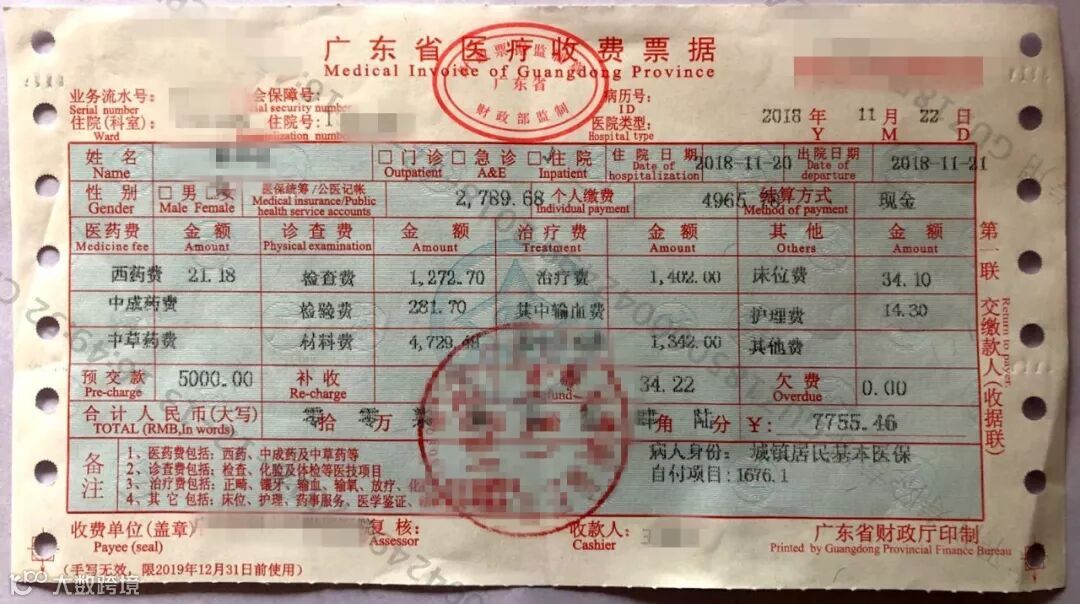 广东省医疗收费票据
Medical Invoice of Guangdong Province
广东省
财政部监制
业务流水号： 会保障号： 病历号：
Serial number social security number ID
住院(科室)： 住院号： 医院类型： 2018 年 11 月 22 日
Ward Hospital type Y M D
姓 名 □门诊□急诊□住院 住院日期 2018-11-20 出院日期 2018-11-21
Name Outpatient A&E Inpatient Date of hospitalization Date of departure
性 别 □男□女 医保统筹/公医记帐 2,789.68 个人缴费 4965. 结算方式 现金
Gender Male Female Medical insurance/Public health service accounts Individual payment Method of payment
医药费 金 额 诊查费 金 额 治疗费 金 额 其 他 金 额
Medicine fee Amount Physical examination Amount Treatment Amount Others Amount
西药费 21.18 检查费 1,272.70 治疗费 1,402.00 床位费 34.10
中成药费 检验费 281.70 其中输血费 护理费 14.30
中草药费 材料费 4,729.48 1,342.00 其他费
预交款 5000.00 补收 34.22 欠费 0.00
Pre-charge Re-charge Refund Overdue
合计人民币(大写) 零拾零万 肆角陆分 ¥： 7755.46
TOTAL (RMB,In words)
备注
1、医药费包括：西药、中成药及中草药等
2、诊查费包括：检查、化验及体检等医技项目
3、治疗费包括：正畸、镶牙、输血、输氧、放疗、化
4、其它包括：床位、护理、药事服务、医学鉴证、
病人身份： 城镇居民基本医保
自付项目:1676.1
收费单位(盖章) 复核： 收款人： 广东省财政厅印制
Payee (seal) Assessor Cashier Printed by Guangdong Provincial Finance Bureau
(手写无效，限2019年12月31日前使用)
第一联 交缴款人(收据联)
Return to payer
大数跨境